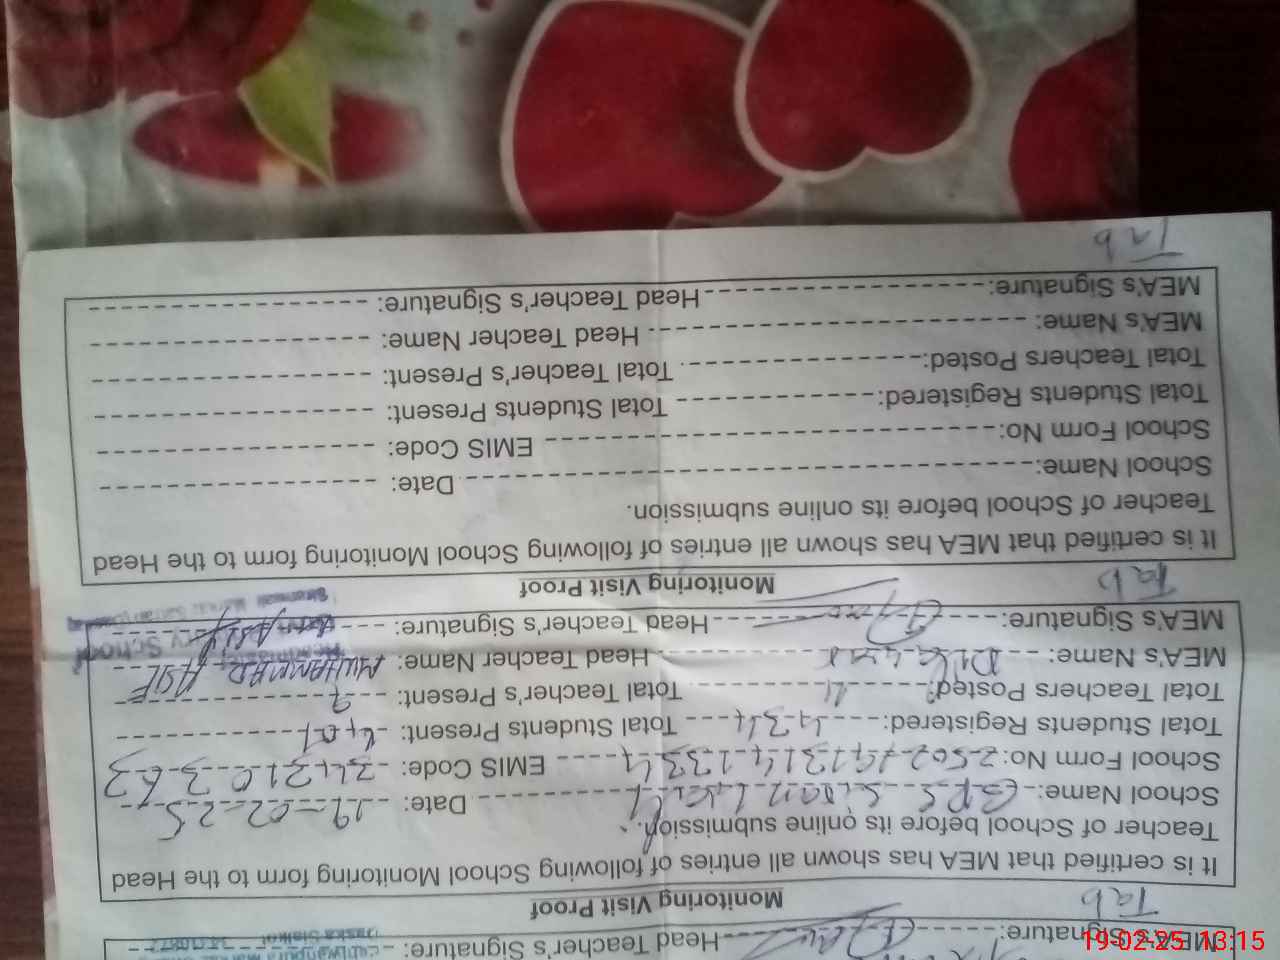 MEA's Signature: Head Teacher's Signature:
Daska Sialkot
Tab
Monitoring Visit Proof
It is certified that MEA has shown all entries of following School Monitoring School form to the Head
Teacher of School before its online submission.
School Name: GPS Date: 19-02-25
School Form No: EMIS Code: 34210363
Total Students Registered: 434 Total Students Present: 401
Total Teachers Posted: Total Teacher's Present: 9
MEA's Name: Head Teacher Name: MUHAMMAD ASIF
MEA's Signature: Head Teacher's Signature:
Tab
Monitoring Visit Proof
It is certified that MEA has shown all entries of following School Monitoring School form to the Head
Teacher of School before its online submission.
School Name: Date:
School Form No: EMIS Code:
Total Students Registered: Total Students Present:
Total Teachers Posted: Total Teacher's Present:
MEA's Name: Head Teacher Name:
MEA's Signature: Head Teacher's Signature:
Tab
19-02-25 13:15